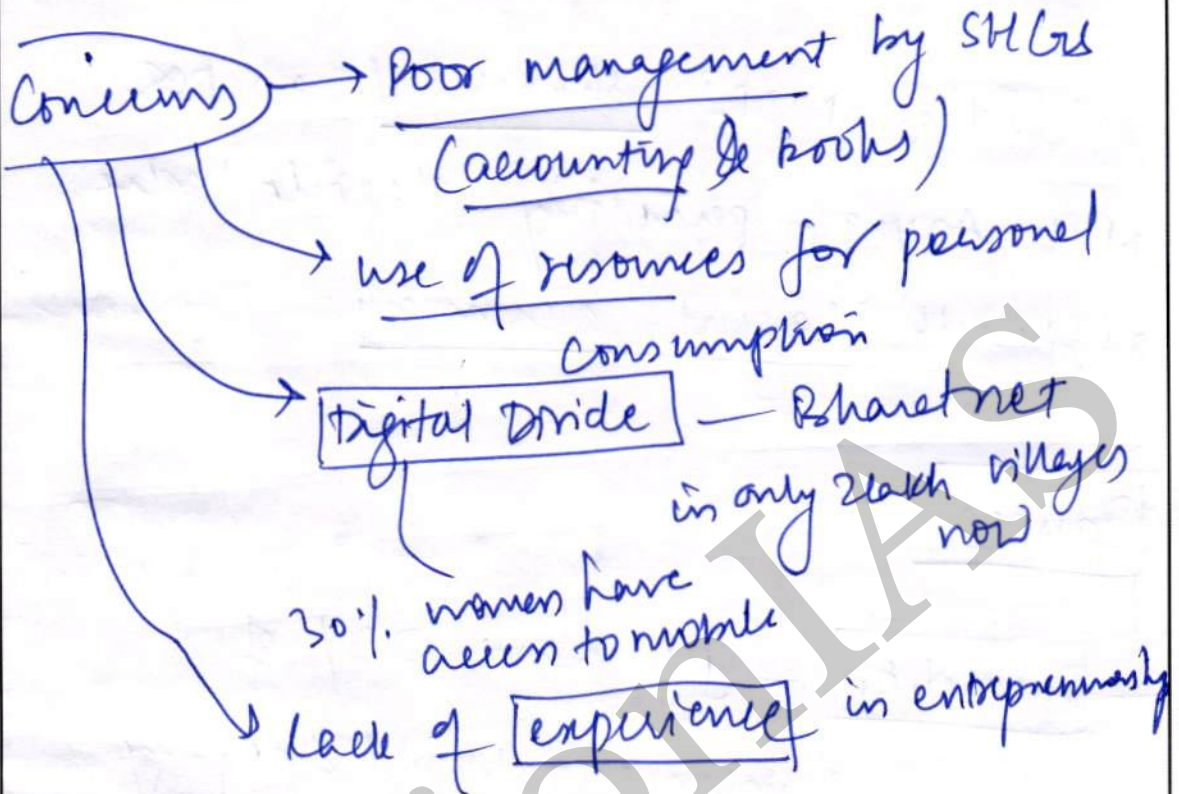 Concerns
→ Poor management by SHGs
(accounting & books)
→ use of resources for personal
consumption
→ Digital Divide — Bharatnet
in only 2 lakh villages
now
30%. women have
access to mobile
→ Lack of experience in entrepreneurship
onIAS